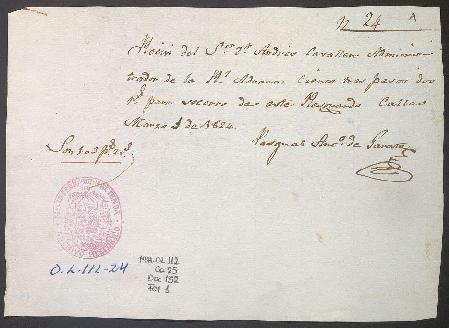 N 24
Recivi del S.or D.n Andres Cavallero Adminis-
trador de la R.l Aduana Ciento tres pesos dos
r.s para socorro de este Resguardo Callao
Marzo 1 de 1824.
Son 103 p.s 2 r.s
Pasqual Ant.o de Garate
MINISTERIO DE HACIENDA
O.L. 112-24
MH-OL 112
Ca 25
Doc 152
Fol 1